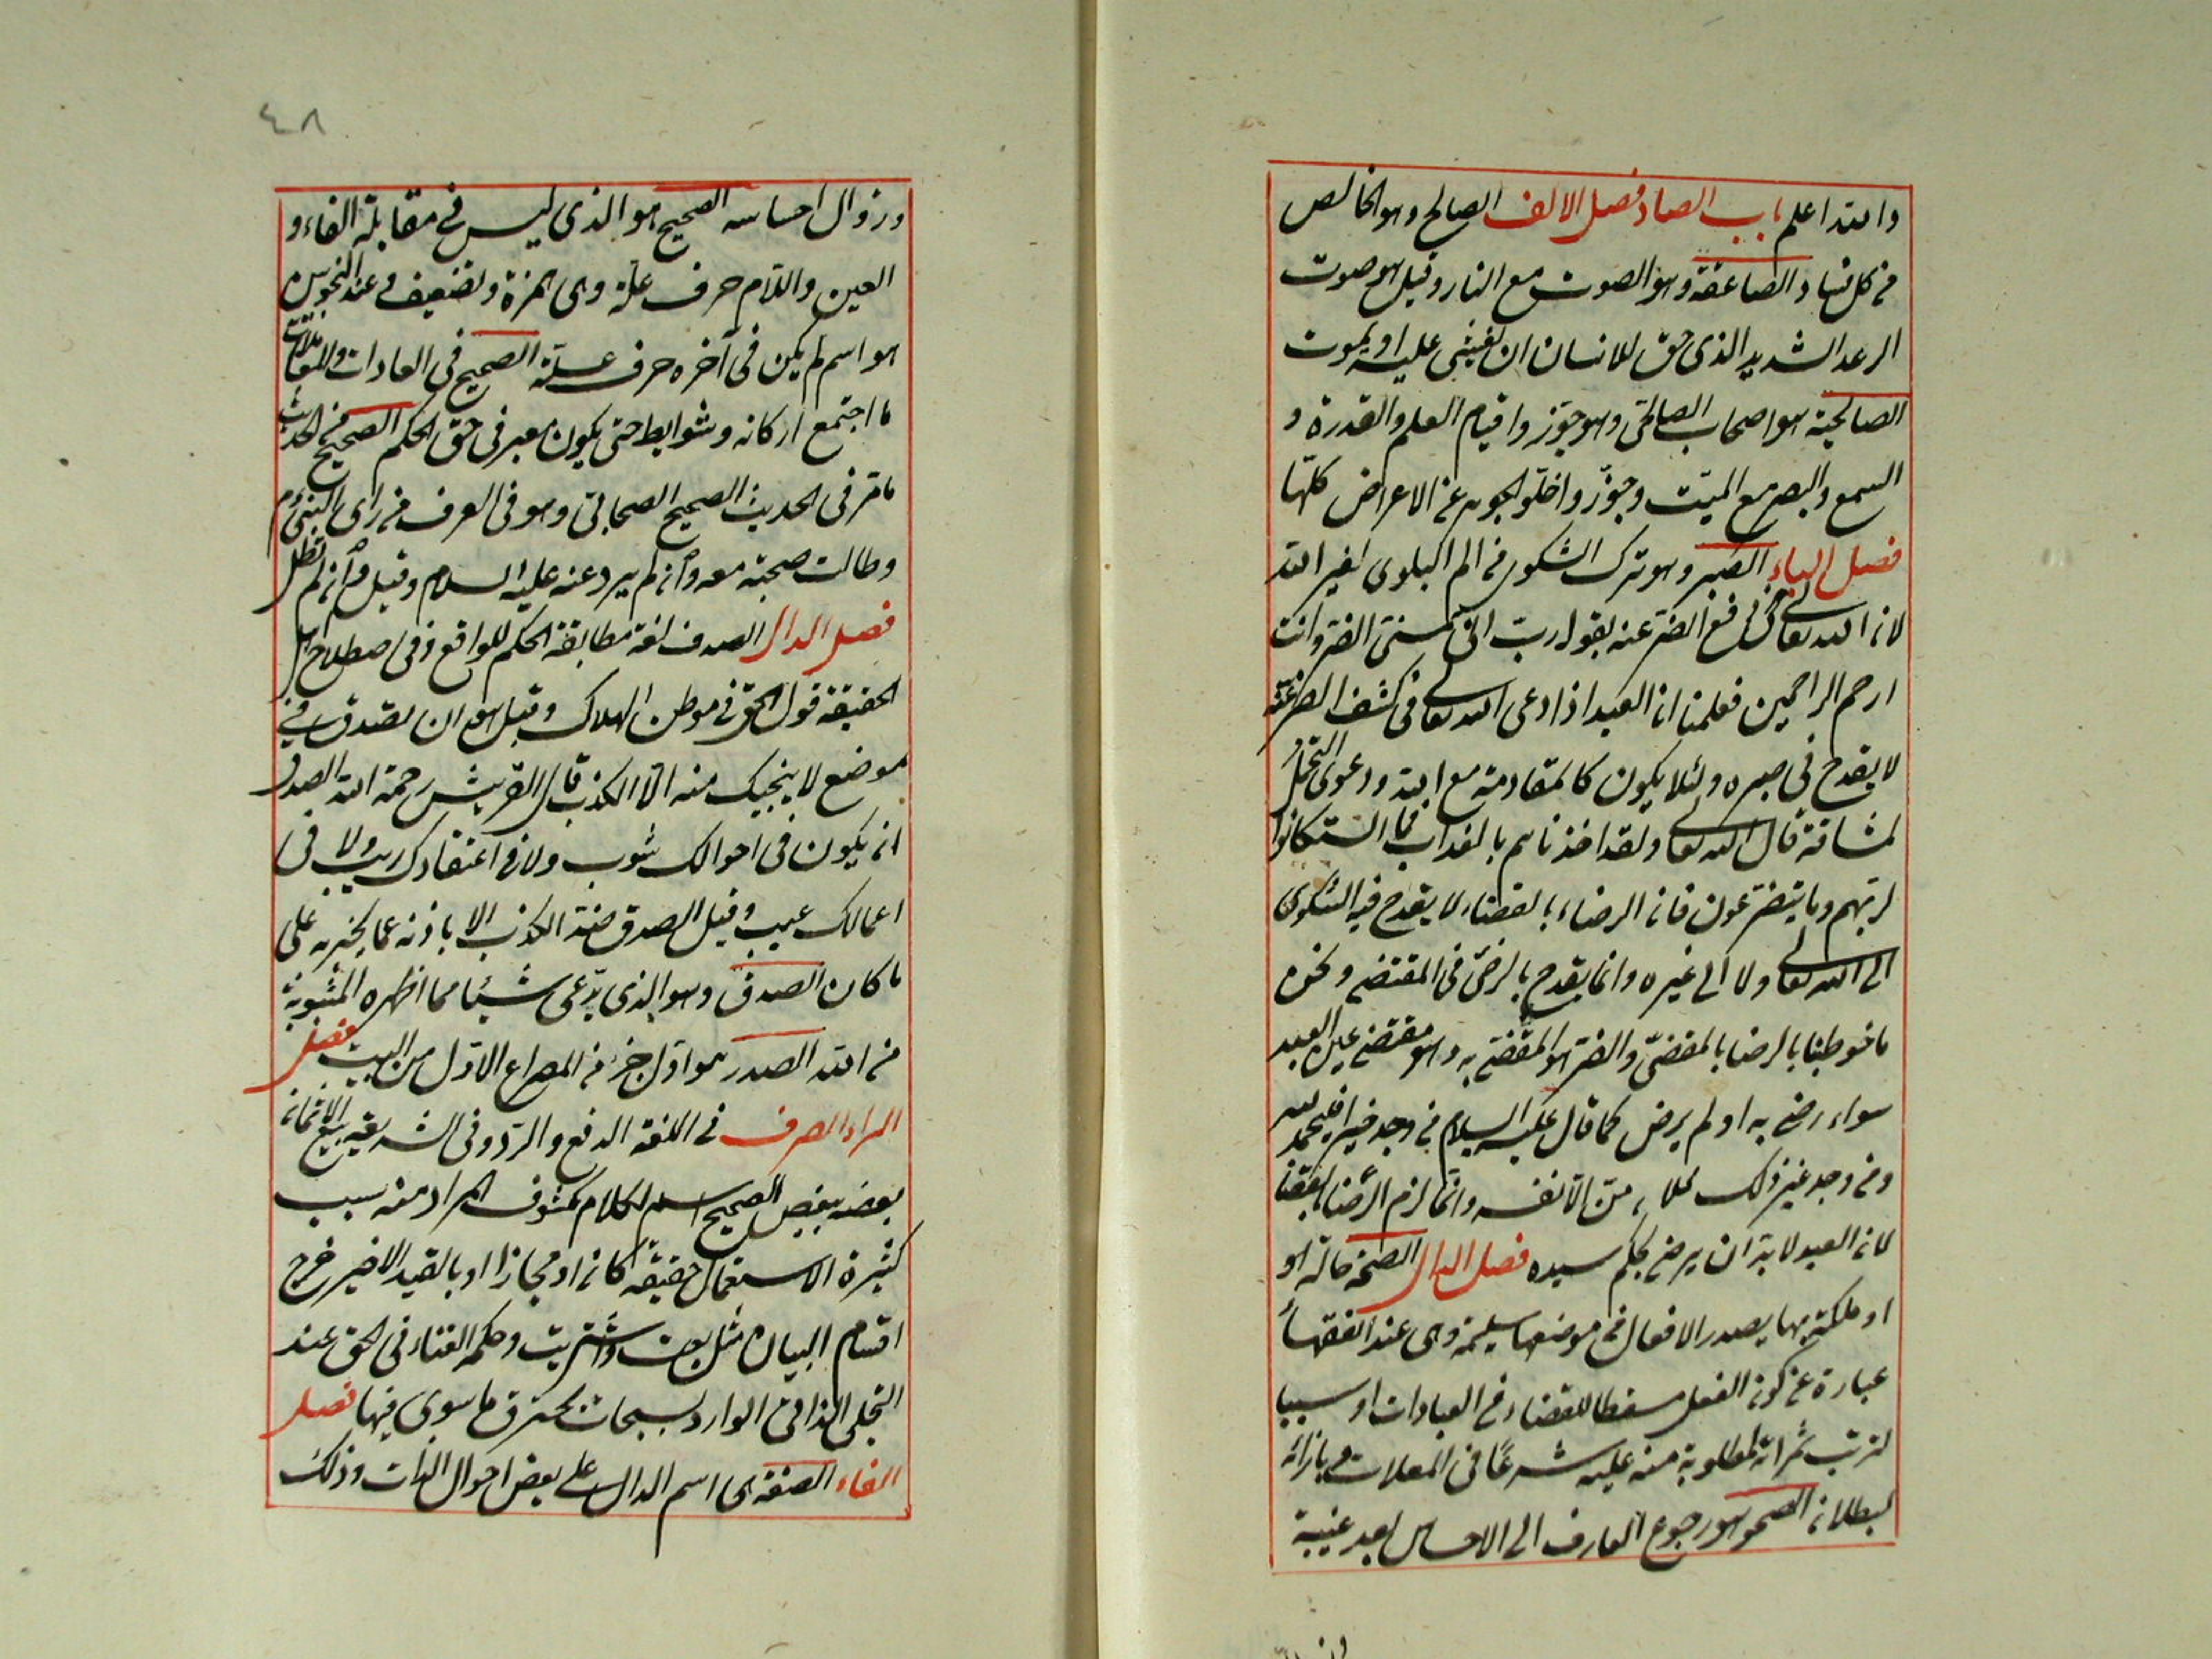 والله اعلم باب الصاد فصل الالف الصالح وهو الخالص
من كل فساد الصاعقة وهو الصوت مع النار وقيل هو صوت
الرعد الشديد الذى حق للانسان ان يغشى عليه او يموت
الصالحية هو اصحاب الصالحى وهو جوّزوا قيام العلم والقدرة و
السمع والبصر مع الميّت وجوّزوا خلو الجوهر عن الاعراض كلّها
فصل الباء الصبر وهو ترك الشكوى من الم البلوى لغير الله
لان الله تعالى فى رفع الضر عنه بقوله ربّ انى مسنى الضر وانت
ارحم الراحمين فعلمنا ان العبد اذا دعى الله تعالى فى كشف الضر عنه
لا يقدح فى صبره ولئلا يكون كالمقاومة مع الله ودعوى التحمّل
لمشاقه قال الله تعالى ولقد اخذناهم بالعذاب فما استكانوا
لربّهم وما يتضرّعون فان الرضاء بالقضاء لا يقدح فيه الشكوى
الى الله تعالى ولا الى غيره وانما يقدح بالرضى فى المقتضى ونحن
ما خوطبنا بالرضا بالمقضىّ والضر هو المقضى به وهو مقتضى عين العبد
سواء رضى به او لم يرض كما قال عليه السلام من وجد خيرا فليحمد الله
ومن وجد غير ذلك فلا يلومنّ الا نفسه وانّما لزم الرّضا بالقضا
لان العبد لا بدّ ان يرضى بحكم سيده فصل الدال الصحة حالة او
او ملكة بها يصدر الافعال من موضعها سليمة وهى عند الفقهاء
عبارة عن كون الفعل مسقطا للقضاء فى العبادات او سببا
لترتب ثمراته المطلوبة منه عليه شرعًا فى المعاملات وبازائه
لبطلان الصحو هو رجوع العارف الى الاحساس بعد غيبة
٤٨
وزوال احساسه الصحيح هو الذى ليس فى مقابلة الفاء و
العين واللام حرف علّة وهى همزة وتضعيف وعند النحويين
هو اسم لم يكن فى آخره حرف علّة الصحيح فى العبادات والمعاملات
ما اجتمع اركانه وشرايطه حتى يكون معبر فى حق الحكم الصحيح من الحديث
ما مرّ فى الحديث الصحيح الصحابىّ وهو فى العرف من راى النبىّ م
وطالت صحبته معه وان لم يرو عنه عليه السلام وقيل وان لم تطل
فصل الدال الصدق لغة مطابقة الحكم للواقع وفى اصطلاح اهل
الحقيقة قول الحق فى موطن الهلاك وقيل هو ان تصدق فى
موضع لا ينجيك منه الّا الكذب قال القريشى رحمة الله الصدق
ان يكون فى احوالك شوب ولا فى اعتقادك ريب ولا فى
اعمالك عيب وقيل الصدق ضد الكذب الابانة عما يخبر به على
ما كان الصدق وهو الذى يدّعى شيئا مما اظهره المثبوتة
من الله الصدر هو اول جزء من المصراع الاوّل من البيت فصل
الراء الصرف فى اللغة الدفع والردّ وفى الشريعة بيع الاثمان
بعضه ببعض الصحيح اسم لكلام مكشوف المراد منه بسبب
كثيرة الاستعمال حقيقة كان او مجازا او بالقيد الاخير خرج
اقسام البيان مثل بعت واشتريت وحكمه الفناء فى الحق عند
التجلى الذاتى الوارد بسبحات يحترق ما سوى فيها فصل
الفاء الصفة هى اسم الدال على بعض احوال الذات وذلك